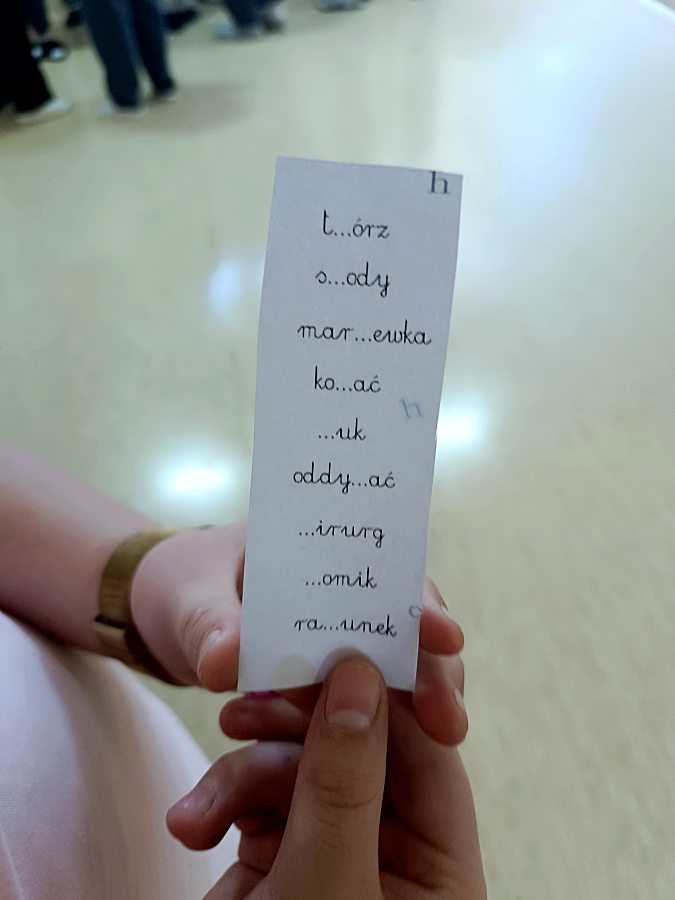 h
t...órz
s...ody
mar...ewka
ko...ać
h
...uk
oddy...ać
...irurg
...omik
c
ra...unek